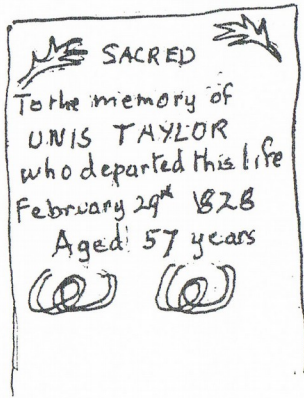 SACRED
To the memory of
UNIS TAYLOR
who departed this life
February 29th 1828
Aged 57 years